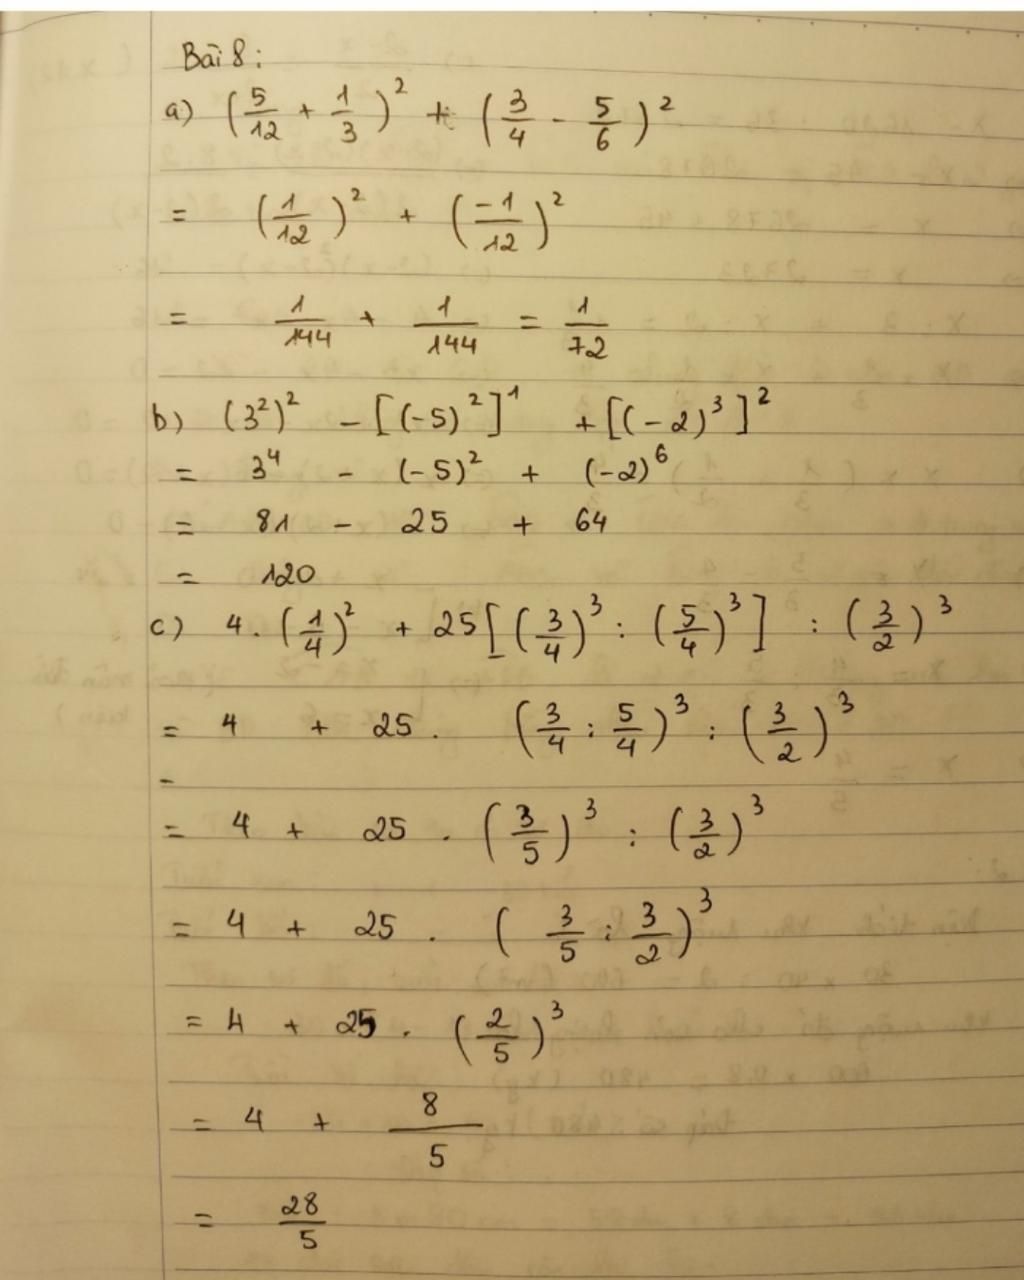 Bài 8:
a) (5/12 + 1/3)² + (3/4 - 5/6)²
= (1/12)² + (-1/12)²
= 1/144 + 1/144 = 1/72
b) (3²)² - [(-5)²]¹ + [(-2)³]²
= 3⁴ - (-5)² + (-2)⁶
= 81 - 25 + 64
= 120
c) 4. (1/4)² + 25[(3/4)³ : (5/4)³] : (3/2)³
= 4 + 25. (3/4 : 5/4)³ : (3/2)³
-
= 4 + 25 . (3/5)³ : (3/2)³
= 4 + 25 . (3/5 : 3/2)³
= 4 + 25 . (2/5)³
= 4 + 8/5
= 28/5